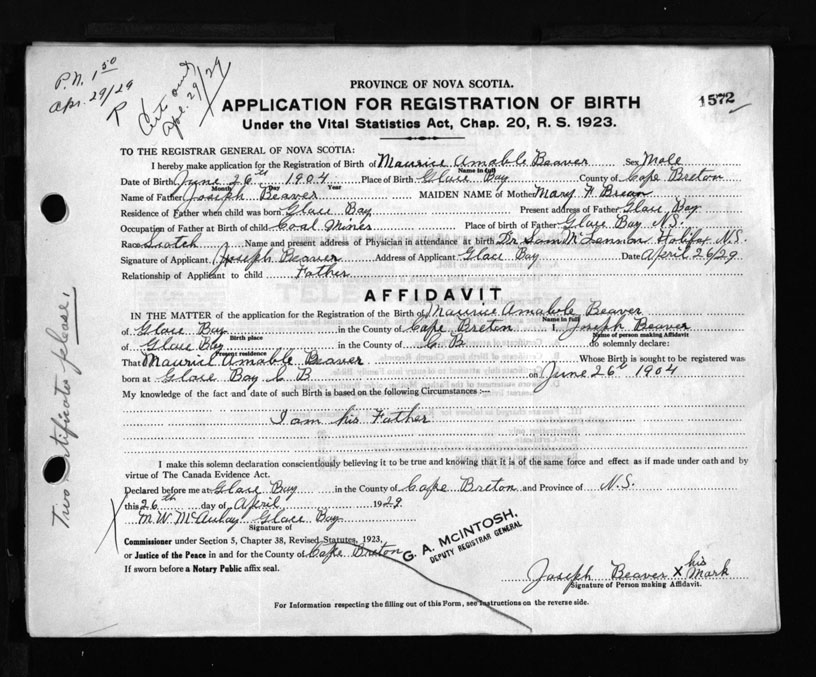 P.N. 1 50
Apr. 29/29
R
Apl. 29/29
PROVINCE OF NOVA SCOTIA.
APPLICATION FOR REGISTRATION OF BIRTH
1572
Under the Vital Statistics Act, Chap. 20, R. S. 1923.
TO THE REGISTRAR GENERAL OF NOVA SCOTIA:
I hereby make application for the Registration of Birth of Maurice Amable Beaver Sex Male
Name in full
Date of Birth June 26th 1904 Place of Birth Glace Bay County of Cape Breton
Month Day Year
Name of Father Joseph Beaver MAIDEN NAME of Mother Mary A Brian
Residence of Father when child was born Glace Bay Present address of Father Glace Bay
Occupation of Father at Birth of child Coal Miner Place of birth of Father Glace Bay N.S.
Race Scotch Name and present address of Physician in attendance at birth Dr Sam McLennan Halifax N.S.
Signature of Applicant Joseph Beaver Address of Applicant Glace Bay Date April 26/29
Relationship of Applicant to child Father
AFFIDAVIT
IN THE MATTER of the application for the Registration of the Birth of Maurice Amabole Beaver
Name in full
of Glace Bay in the County of Cape Breton I, Joseph Beaver
Birth place Name of person making Affidavit
of Glace Bay in the County of C B do solemnly declare:
Present residence
That Maurice Amable Beaver Whose Birth is sought to be registered was
born at Glace Bay C B on June 26th 1904
My knowledge of the fact and date of such Birth is based on the following Circumstances :—
I am his Father
I make this solemn declaration conscientiously believing it to be true and knowing that it is of the same force and effect as if made under oath and by
virtue of The Canada Evidence Act.
Declared before me at Glace Bay in the County of Cape Breton and Province of N.S.
this 26th day of April 1929
M.W. McAulay Glace Bay
Signature of
Commissioner under Section 5, Chapter 38, Revised Statutes, 1923,
or Justice of the Peace in and for the County of Cape Breton
If sworn before a Notary Public affix seal.
G. A. McINTOSH,
DEPUTY REGISTRAR GENERAL
Joseph Beaver X his Mark
Signature of Person making Affidavit.
For Information respecting the filling out of this Form, see Instructions on the reverse side.
Two certificates please,